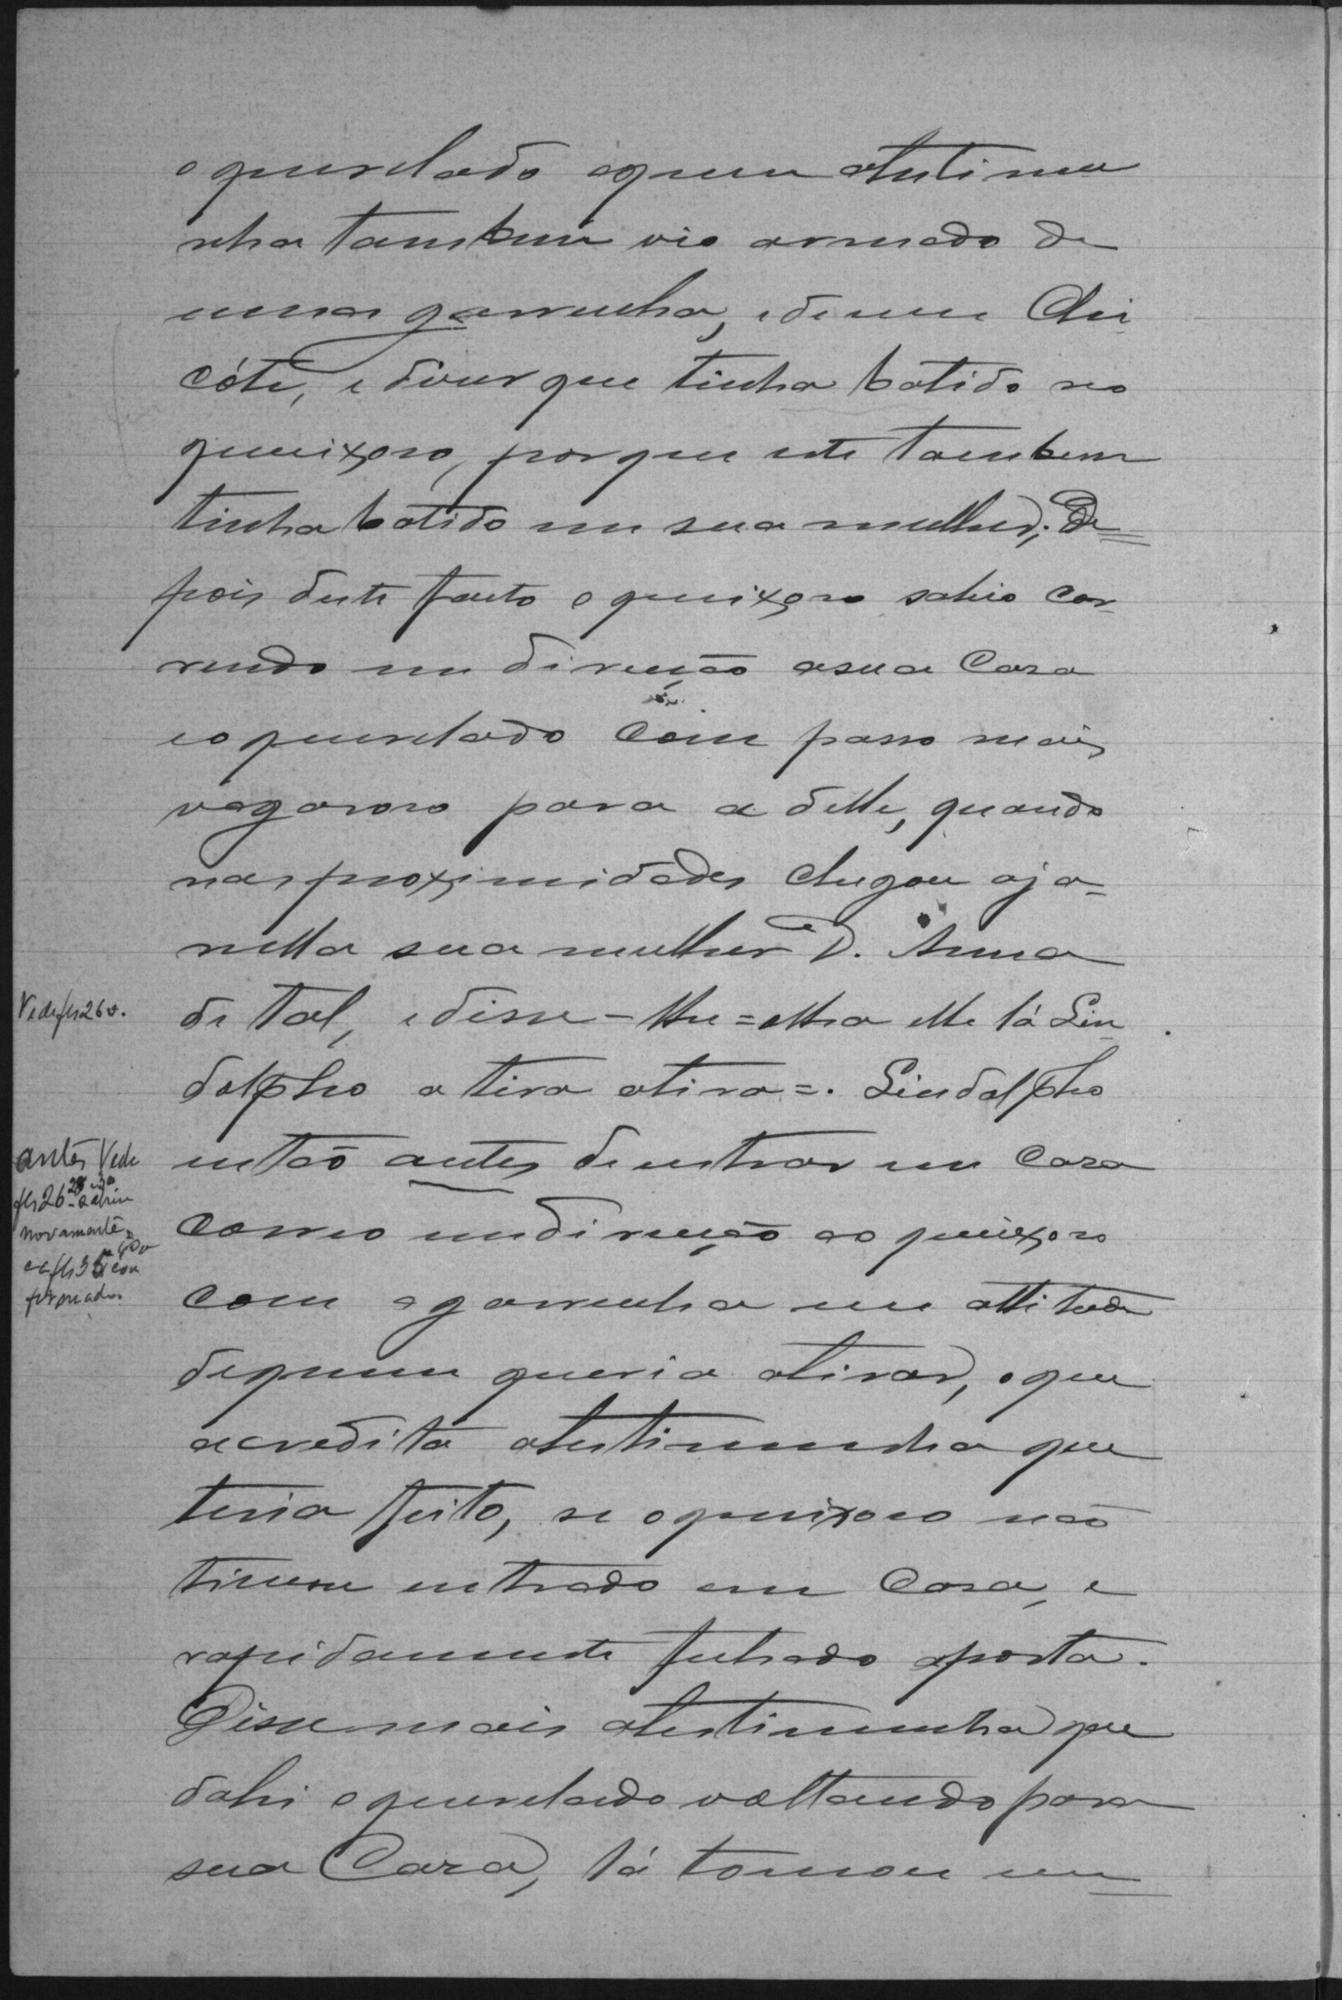 o querelado a quem a testimu
nha tambem vio armado de
uma garrucha, e de um Chi
cóte, e disse que tinha batido no
queixoso, porque este tambem
tinha batido em sua mulher; De=
pois deste facto o queixoso sahio cor-
rendo em direcção a sua Casa
e o querelado com passo mais
vagaroso para a delle, quando
nas proximidades chegou a ja=
nella sua mulher D. Anna
de tal, e disse-lhe = olha elle lá Lin
dolpho atira atira =. Lindolpho
então antes de entrar em Casa
correo em direcção ao queixoso
com a garrucha em attitude
de quem queria atirar, o que
acredita a testimunha que
teria feito, se o queixoso não
tivesse entrado em Casa, e
rapidamente fechado a porta.
Disse mais a testimunha que
dahi o querelado voltando para
sua Casa, lá tomou um
Vide fls 26 v.
antes Vide
fls 26
novamente
e a fls 35